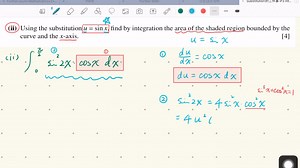 (ii) Using the substitution u = sin x, find by integration the area of the shaded region bounded by the
curve and the x-axis. [4]
u = sin x
(ii) ∫ sin² 2x · cos x dx
① du/dx = cos x
du = cos x dx
sin²x + cos²x = 1
② sin² 2x = 4 sin² x cos² x
= 4 u² (